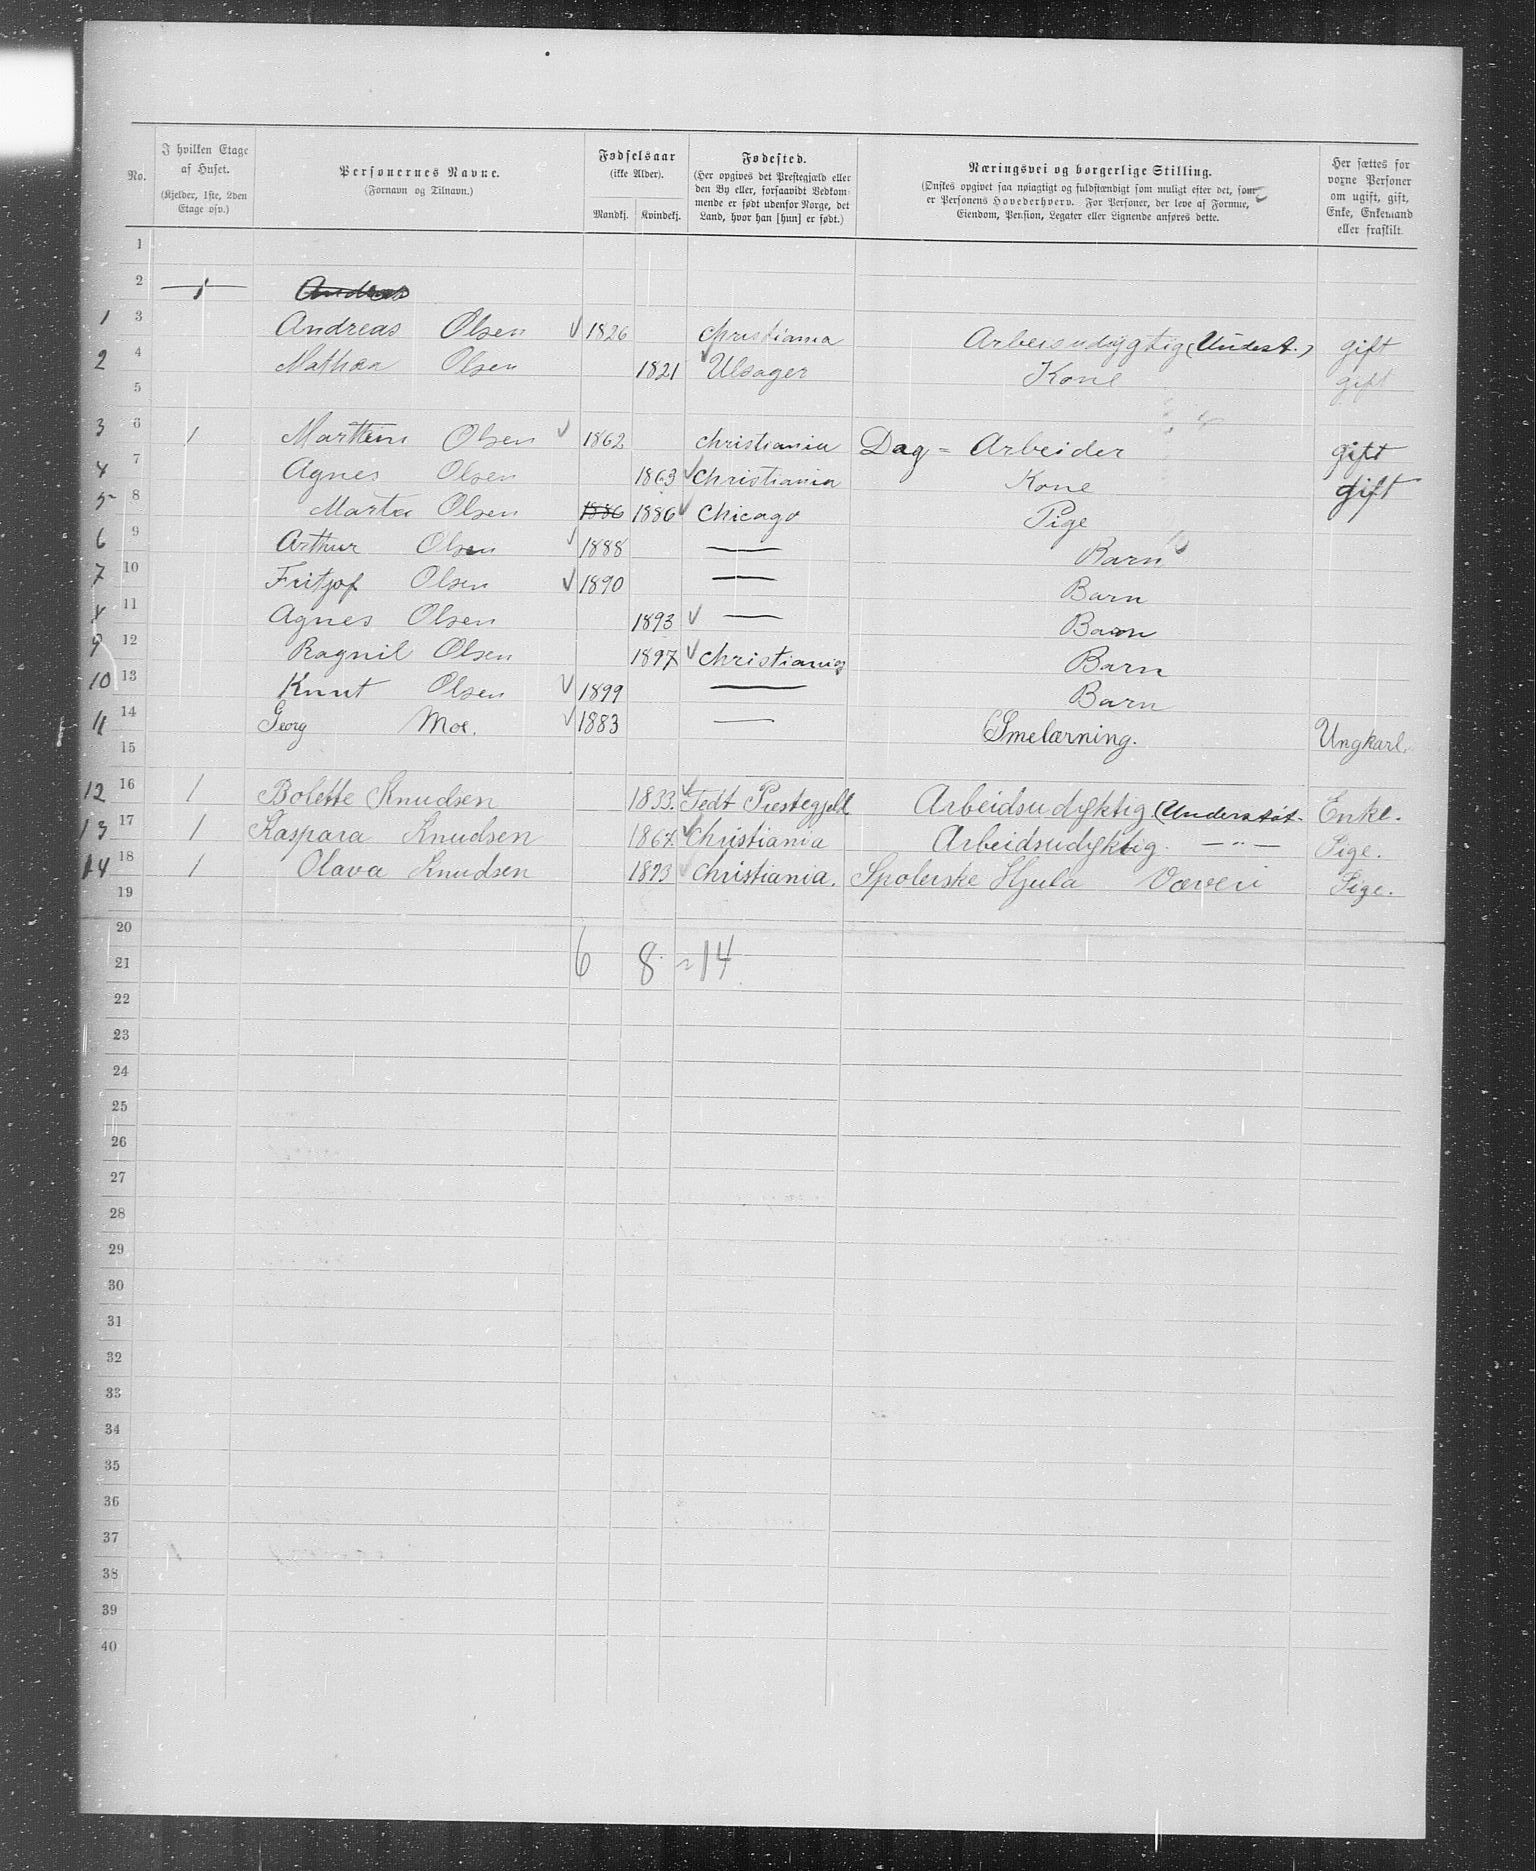 No.
I hvilken Etage
af Huset.
(Kjelder, 1ste, 2den
Etage osv.)
Personernes Navne.
(Fornavn og Tilnavn.)
Fødselsaar
(ikke Alder).
Mandkj. Kvindekj.
Fødested.
(Her opgives det Prestegjæld eller
den By eller, forsaavidt Vedkom-
mende er født udenfor Norge, det
Land, hvor han [hun] er født.)
Næringsvei og borgerlige Stilling.
(Ønskes opgivet saa nøiagtigt og fuldstændigt som muligt efter det, som
er Personens Hovederhverv. For Personer, der leve af Formue,
Eiendom, Pension, Legater eller Lignende anføres dette.
Her sættes for
voxne Personer
om ugift, gift,
Enke, Enkemand
eller fraskilt.
1
2 1 Andreas
1 3 Andreas Olsen 1826 Christiania Arbeisudygtig (Underst.) gift
2 4 Mathea Olsen 1821 Ulsager Kone gift
5
3 6 1 Marthin Olsen 1862 Christiania Dag = Arbeider gift
4 7 Agnes Olsen 1863 Christiania Kone gift
5 8 Marta Olsen 1886 1886 Chicago Pige
6 9 Arthur Olsen 1888 — Barn
7 10 Fritjof Olsen 1890 — Barn
8 11 Agnes Olsen 1893 — Barn
9 12 Ragnil Olsen 1897 Christiania Barn
10 13 Knut Olsen 1899 — Barn
11 14 Georg Moe. 1883 — Smelærning. Ungkarl.
15
12 16 1 Bolette Knudsen 1833. Tedt Prestegjeld Arbeidsudyktig (Understøt. Enke.
13 17 1 Kaspara Knudsen 1867. Christiania Arbeidsudyktig. — " — Pige.
14 18 1 Olava Knudsen 1873 Christiania. Spolerske Hjula Væveri Pige.
19
20
21 6 8 = 14
22
23
24
25
26
27
28
29
30
31
32
33
34
35
36
37
38
39
40